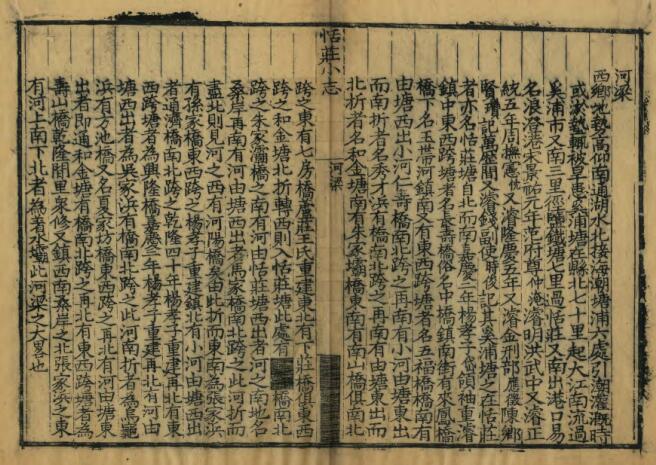 河梁
西鄉地勢高仰南通湖水北接海潮塘浦六處引潮灌溉時
或淤輒被旱患奚浦塘在縣北七十里起大江南流過
奚浦市又南三里經鐵塘七里過恬莊又南出港口易
名浪澄港宋景祐元年范府尊仲淹濬明洪武中又濬正
統五年周撫憲忱又濬隆慶五年又濬金刑部應徵陳鄉
賢瓚記萬歷間又濬錢副使時俊記其奚浦塘之在恬莊
者亦名恬莊塘自北而南嘉慶二年楊孝子岱領袖重濬
鎮中東西跨塘者名長壽橋俗名中橋鎮南街有來鳳橋
橋下名玉帶河鎮南又有東西跨塘者名五福橋橋南有
由塘西出小河仁壽橋南北跨之再南有小河由塘東出
而南折者名秀才浜有橋南北跨之再南有由塘東出而
北折者名和金塘南有朱家壩橋南東有南山橋俱南北
恬莊小志
河梁
跨之東有七房橋蘆莊王氏重建東北有下莊橋俱東西
跨之和金塘北折轉西則入恬莊塘此處有橋南北
跨之朱家橋之南有河由恬莊塘西出者河之南地名
桑岸再南有河由塘西出者馬家橋南北跨之此河折而
盡北則見河之西有河陽橋矣由此折而東南為張家浜
有孫家橋東西跨之楊孝子重建鎮北有小河由塘西出
者通濟橋南北跨之乾隆四十年楊孝子重建再北有東
西跨塘者為興隆橋嘉慶二年楊孝子重建再北有河由
塘西出者為吳家浜有橋南北跨之此河南折者為烏龜
浜有方池橋又名夏家坊橋東西跨之再北有河由塘東
出者即通和金塘有橋南北跨之再北有東西跨塘者為
壽山橋乾隆間里眾修又鎮西南桑岸之北張家浜之東
有河上南下北者為者水壩此河梁之大畧也